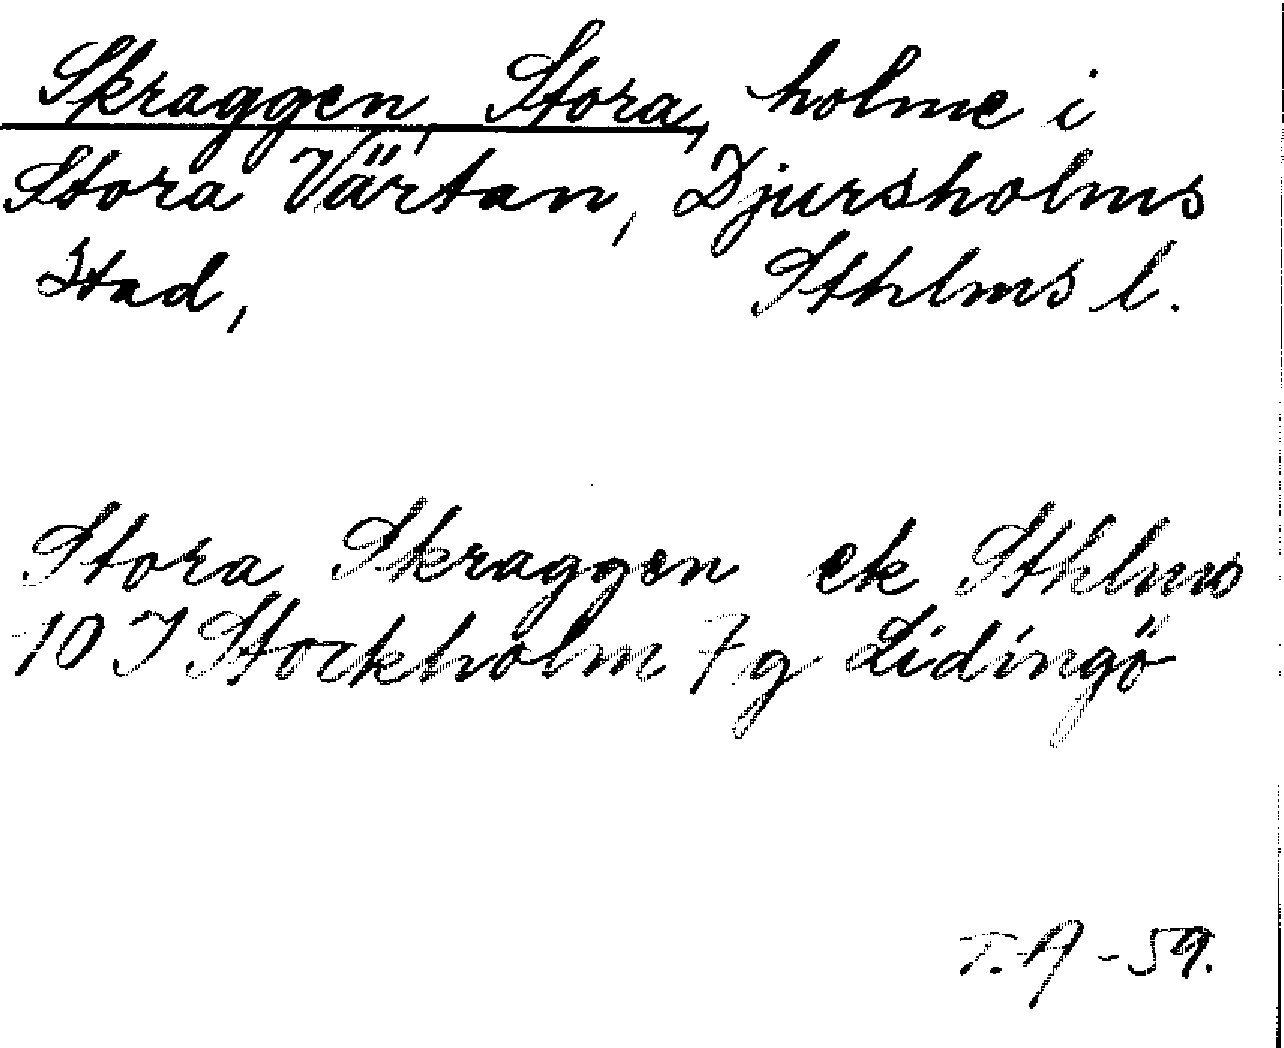 Skraggen, Stora, holme i
Stora Värtan, Djursholms
Stad, Sthlms l.
Stora Skraggen ek Sthlms
10 I Stockholm 7 g Lidingö
T.A -59.